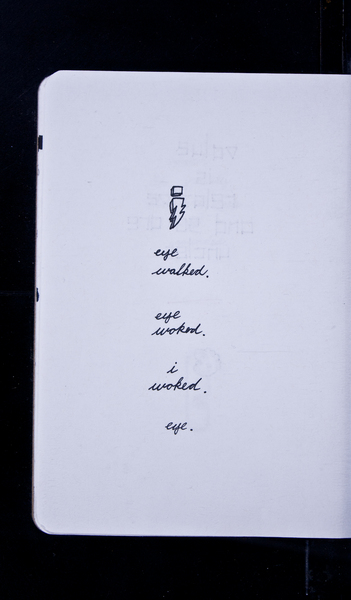 i
eye
walked.
eye
woked.
i
woked.
eye.